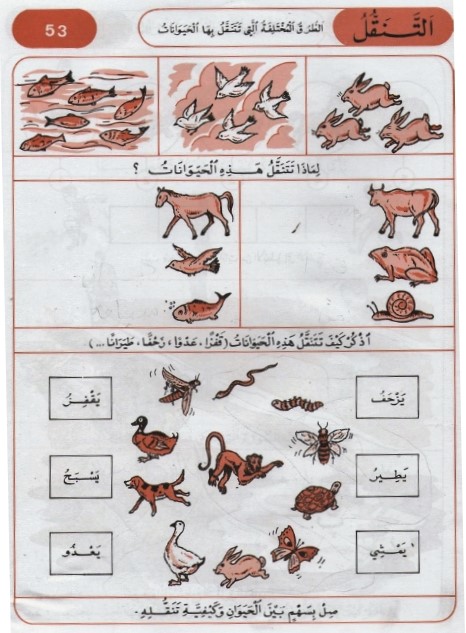 اَلتَّنَقُّلُ
اَلطُّرُقُ الْمُخْتَلِفَةُ الَّتِي تَتَنَقَّلُ بِهَا الْحَيَوَانَاتُ
53
لِمَاذَا تَتَنَقَّلُ هَذِهِ الْحَيَوَانَاتُ ؟
اُذْكُرْ كَيْفَ تَتَنَقَّلُ هَذِهِ الْحَيَوَانَاتُ (قَفْزًا، عَدْوًا، زَحْفًا، طَيَرَانًا ...)
يَزْحَفُ
يَقْفِزُ
يَطِيرُ
يَسْبَحُ
يَمْشِي
يَعْدُو
صِلْ بِسَهْمٍ بَيْنَ الْحَيَوَانِ وَكَيْفِيَّةِ تَنَقُّلِهِ.